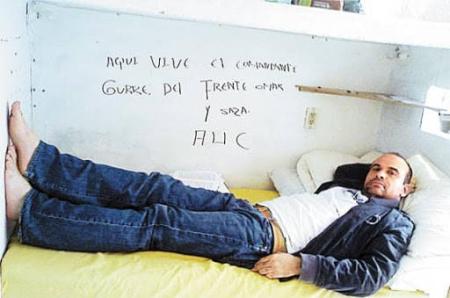 AQUI VIVE EL COMANDANTE
GURRE DEL FRENTE OMAR
Y SAZA.
AUC